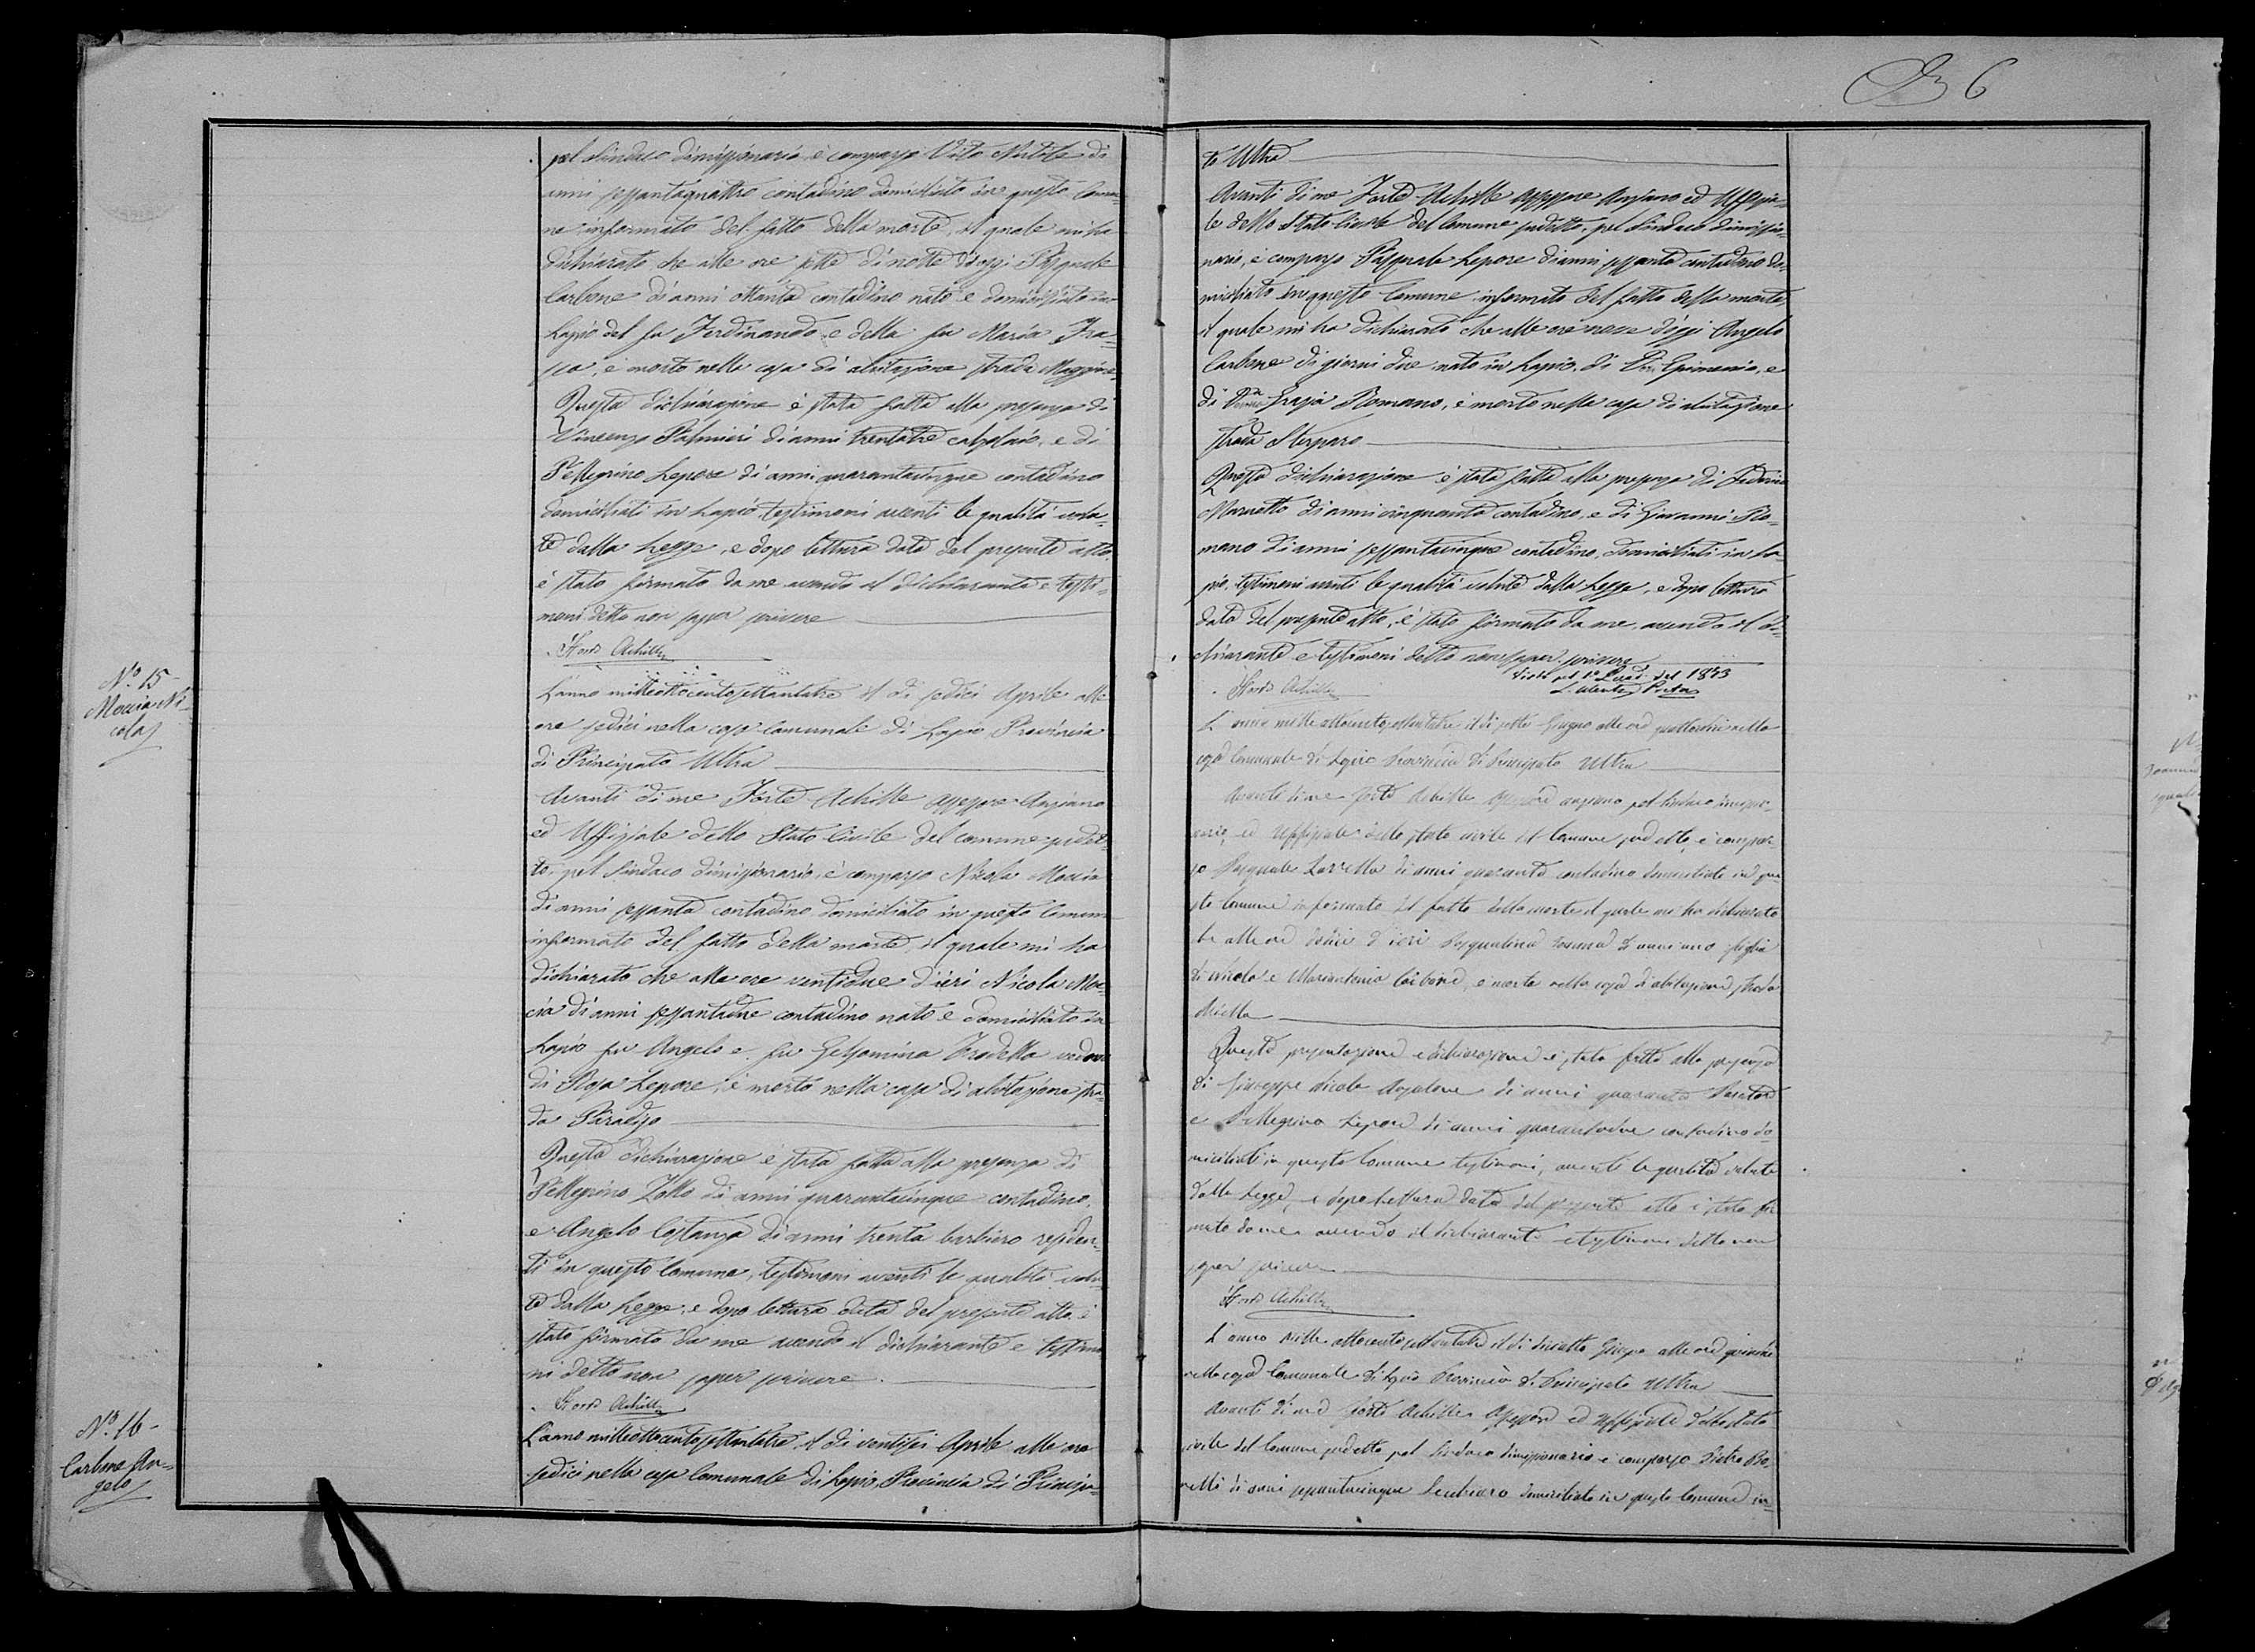 6
pel Sindaco dimissionario è comparso Vito
anni sessantaquattro contadino domiciliato in questo Comu-
ne informato del fatto della morte, il quale mi ha
dichiarato che alle ore sette di notte d'oggi Pasquale
Carbone di anni ottanta contadino nato e domiciliato in
Lapio del fu Ferdinando e della fu Maria
è morto nella casa di abitazione strada Maggiore
Questa dichiarazione è stata fatta alla presenza di
Vincenzo Palmieri di anni trentatre calzolaio, e di
Pellegrino Lepore di anni quarantacinque contadino
domiciliati in Lapio, testimoni aventi le qualità volu-
te dalla Legge, e dopo lettura data del presente atto,
è stato firmato da me avendo il dichiarante e testi-
moni detto non saper scrivere
Forte Achille
No. 15
Moccia Ni-
cola
L'anno milleottocentosettantatre il dì sedici Aprile alle
ore sedici nella casa Comunale di Lapio Provincia
di Principato Ultra
Avanti di me Forte Achille Assessore Anziano
ed Uffiziale dello Stato Civile del comune sudet-
to, pel Sindaco dimissionario, è comparso Nicola Moccia
di anni sessanta contadino domiciliato in questo Comune
informato del fatto della morte, il quale mi ha
dichiarato che alle ore ventidue d'ieri Nicola Moc-
cia di anni sessantadue contadino nato e domiciliato in
Lapio fu Angelo e fu Gelsomina Trodella vedovo
di Rosa Lepore, è morto nella casa di abitazione stra-
da Paradiso
Questa dichiarazione è stata fatta alla presenza di
Pellegrino Zollo di anni quarantacinque contadino,
e Angelo Costanza di anni trenta barbiero residen-
ti in questo Comune, testimoni aventi le qualità volu-
te dalla Legge, e dopo lettura data del presente atto, è
stato firmato da me avendo il dichiarante e testimo
ni detto non saper scrivere
Forte Achille
No. 16
Carbone An-
gelo
L'anno milleottocentosettantatre, il dì ventisei Aprile alle ore
sedici nella casa Comunale di Lapio, Provincia di Principa-
to Ultra
Avanti di me Forte Achille Assessore Anziano ed Uffizia-
le dello Stato Civile del Comune sudetto, pel Sindaco dimissio-
nario, è comparso Pasquale Lepore di anni sessanta contadino do-
miciliato in questo Comune informato del fatto della morte,
il quale mi ha dichiarato che alle ore nove d'oggi Angelo
Carbone di giorni due nato in Lapio di Epimenio, e
di Grazia Romano, è morto nella casa di abitazione
strada Sterparo
Questa dichiarazione è stata fatta alla presenza di
di anni cinquanta contadino, e di Giovanni Ro-
mano di anni sessantacinque contadino, domiciliati in La-
pio, testimoni aventi le qualità volute dalla Legge, e dopo lettura
data del presente atto, è stato firmato da me, avendo il di-
chiarante e testimoni detto non saper scrivere
Visto pel 1o Quad. del 1873
Forte Achille
L'anno mille ottocento settantatre il dì sette Giugno alle ore quattordici nella
casa Comunale di Lapio Provincia di Principato Ultra
Avanti di me Forte Achille Assessore anziano pel Sindaco dimissio-
nario, ed Uffiziale dello stato civile del Comune sudetto, è compar-
so Pasquale di anni quaranta contadino domiciliato in que-
sto Comune informato del fatto della morte il quale mi ha dichiarato
che alle ore dodici d'ieri Pasqualina di anni uno figlia
di Nicola e Mariantonia Carbone, è morta nella casa di abitazione strada
Questa presentazione e dichiarazione è stata fatta alla presenza
di Giuseppe Nicola di anni quaranta
e Pellegrino Lepore di anni quarantadue contadino do-
miciliati in questo Comune testimoni, aventi le qualità volute
dalla Legge, e dopo lettura data del presente atto è stato fir
mato da me avendo il dichiarante e testimoni detto non
saper scrivere
Forte Achille
L'anno mille ottocento settantatre il dì diciotto Giugno alle ore quindici
nella casa Comunale di Lapio Provincia di Principato Ultra
Avanti di me Forte Achille Assessore ed Uffiziale dello stato
civile del Comune sudetto pel Sindaco dimissionario è comparso Pietro
di anni sessantacinque domiciliato in questo Comune in-